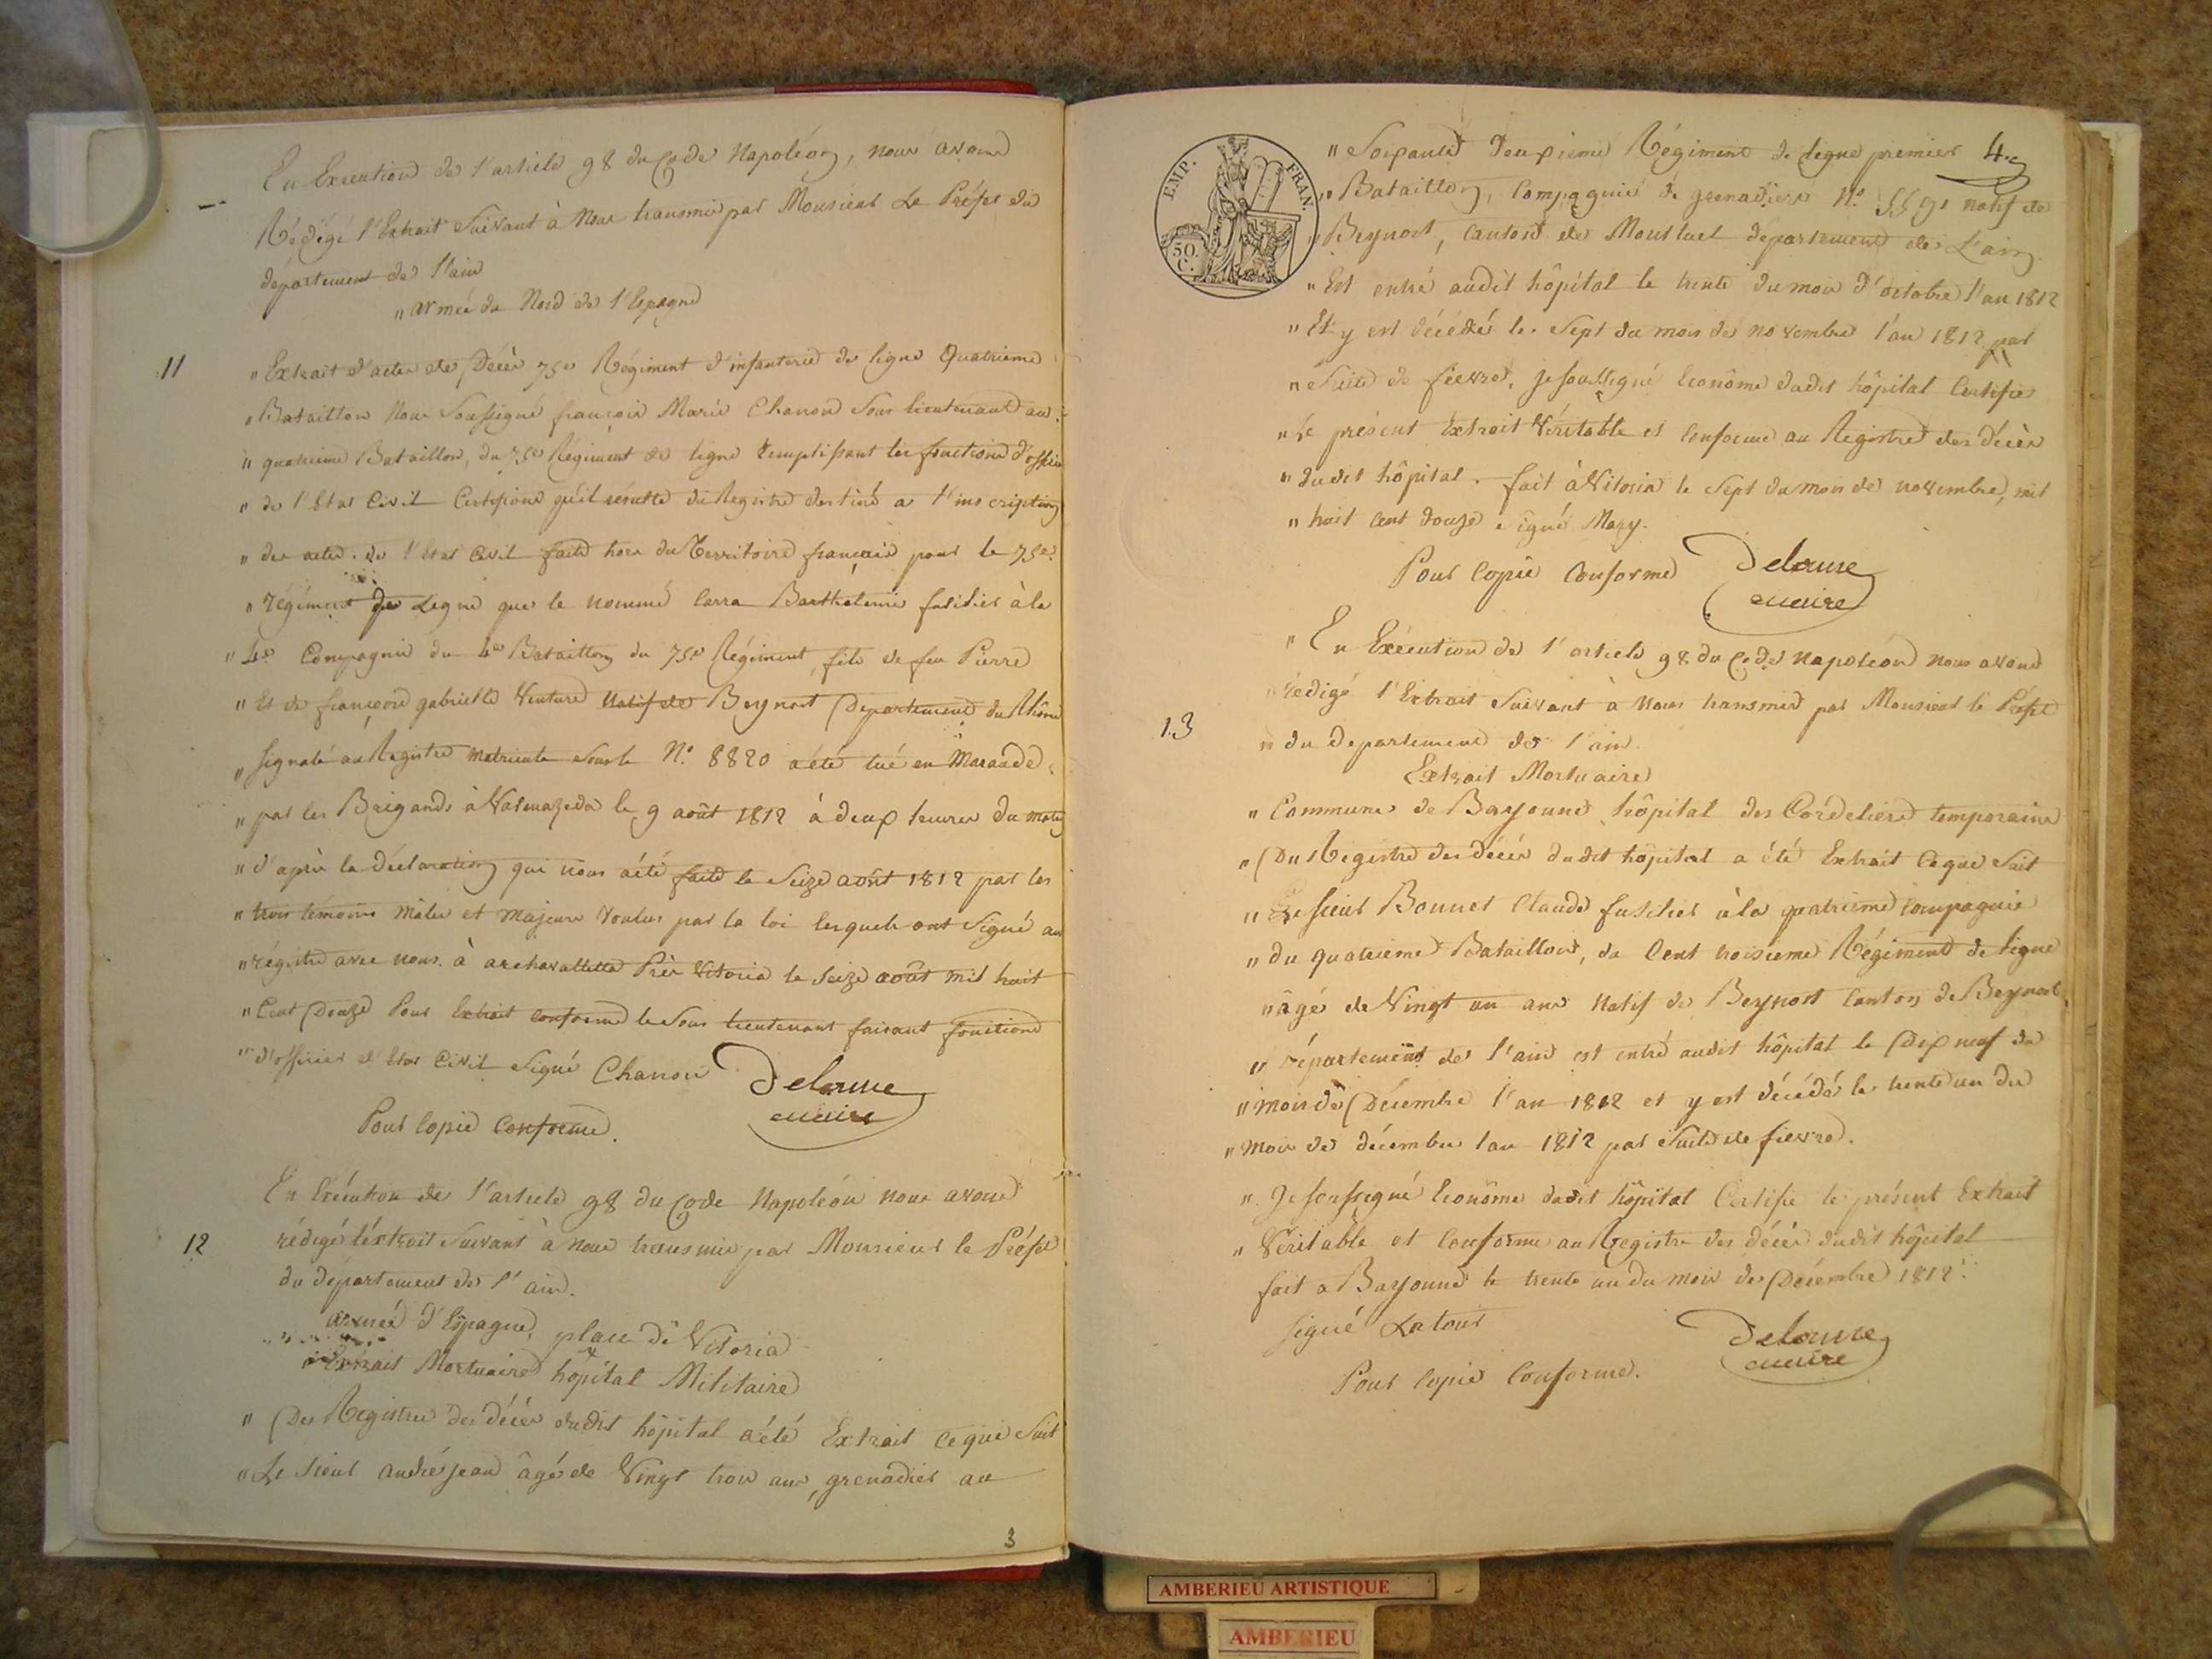 En Execution de l'article 98 du Code Napoléon, nous avons
Rédégé l'Extrait Suivant à Nous transmis par Monsieur Le Préfet du
département de l'ain
" armée du Nord de l'Espagne
11
" Extrait d'actes de Décès 75e Régiment d'infanterie de ligne Quatrieme
" Bataillon Nous Soussigné françois Marie Chanon Sous lieutenant au
" quatrieme Bataillon, du 75e Régiment de ligne remplissant les fonctions d'officier
" de l'Etat Civil Certifions qu'il résulte du Registre destiné a l'inscription
" des actes de l'Etat Civil faits hors du Territoire français pour le 75e
" régiment de Ligne que le nommé Carra Barthelemie fusilier à la
" 4e Compagnie du 4e Bataillon du 75e Régiment, fils de feu Pierre
" Et de françoise gabrielle Venture Natif de Beynost Departement du Rhône
" signalé au Registre matricule sous le N.o 8820 a été tué en Maraude
" par les Brigands à Valmazeda le 9 août 1812 à deux heures du matin
" d'après la déclaration qui nous a été faite le Seize août 1812 par les
" trois témoins mâles et majeurs voulus par la loi lesquels ont signé au
" régistre avec nous. à archavallette Près Vitoria le Seize août mil huit
" Cent Douze Pour Extrait conforme le Sous lieutenant faisant fonctions
" d'officier d'Etat Civil Signé Chanon
Delorme
maire
Pour Copie Conforme.
En Exécution de l'article 98 du Code Napoléon nous avons
12
rédigé l'éxtrait Suivant à nous transmis par Monsieur le Préfet
du département de l'ain.
armée d'Espagne, place de Vitoria
Extrait Mortuaire hôpital Militaire
" Des Registres des décès dudit hôpital a été Extrait ce qui Suit
" Le sieur andré jean âgé de Vingt trois ans, grenadier au
3
EMP. FRAN.
50. C.
4.
" Soixante Deuxieme Régiment de Ligne premier
" Bataillon, Compagnie de grenadiers N.o natif de
" Beynost, Canton de Montluel département de L'ain
" Est entré audit hôpital le trente du mois d'octobre l'an 1812
" Et y est décédé le Sept du mois de novembre l'an 1812 par
" Suite de fievre. Je soussigné Econôme dudit hôpital Certifie
" Le présent Extrait Véritable et Conforme au Registre des décès
" dudit hôpital. fait à Vitoria le Sept du mois de novembre, mil
" huit Cent douze signé Mary.
Pour Copie Conforme
Delorme
maire
" En Exécution de l'article 98 du Code Napoléon nous avons
" rédigé l'Extrait Suivant à Nous transmis par Monsieur le Préfet
13
" du departement de l'ain.
Extrait Mortuaire
" Commune de Bayonne hôpital des Cordeliers temporaire
" Du Registre des décès dudit hôpital a été Extrait Ce qui Suit
" Le sieur Bonnet Claude fusilier à la quatrieme Compagnie
" du quatrieme Bataillon, du Cent troisieme Régiment de ligne
" âgé de Vingt un ans Natif de Beynost Canton de Beynost
" Département de l'ain est entré audit hôpital le Dix neuf du
" mois de Décembre l'an 1812 et y est décédé le trente un du
" Mois de décembre l'an 1812 par Suite de fievre.
" Je soussigné Econôme dudit hôpital Certifie le présent Extrait
" Véritable et Conforme au Registre des décès dudit hôpital
fait a Bayonne le trente un du mois de Décembre 1812.
signé Latour
Delorme
maire
Pour Copie Conforme.
AMBERIEU ARTISTIQUE
AMBERIEU